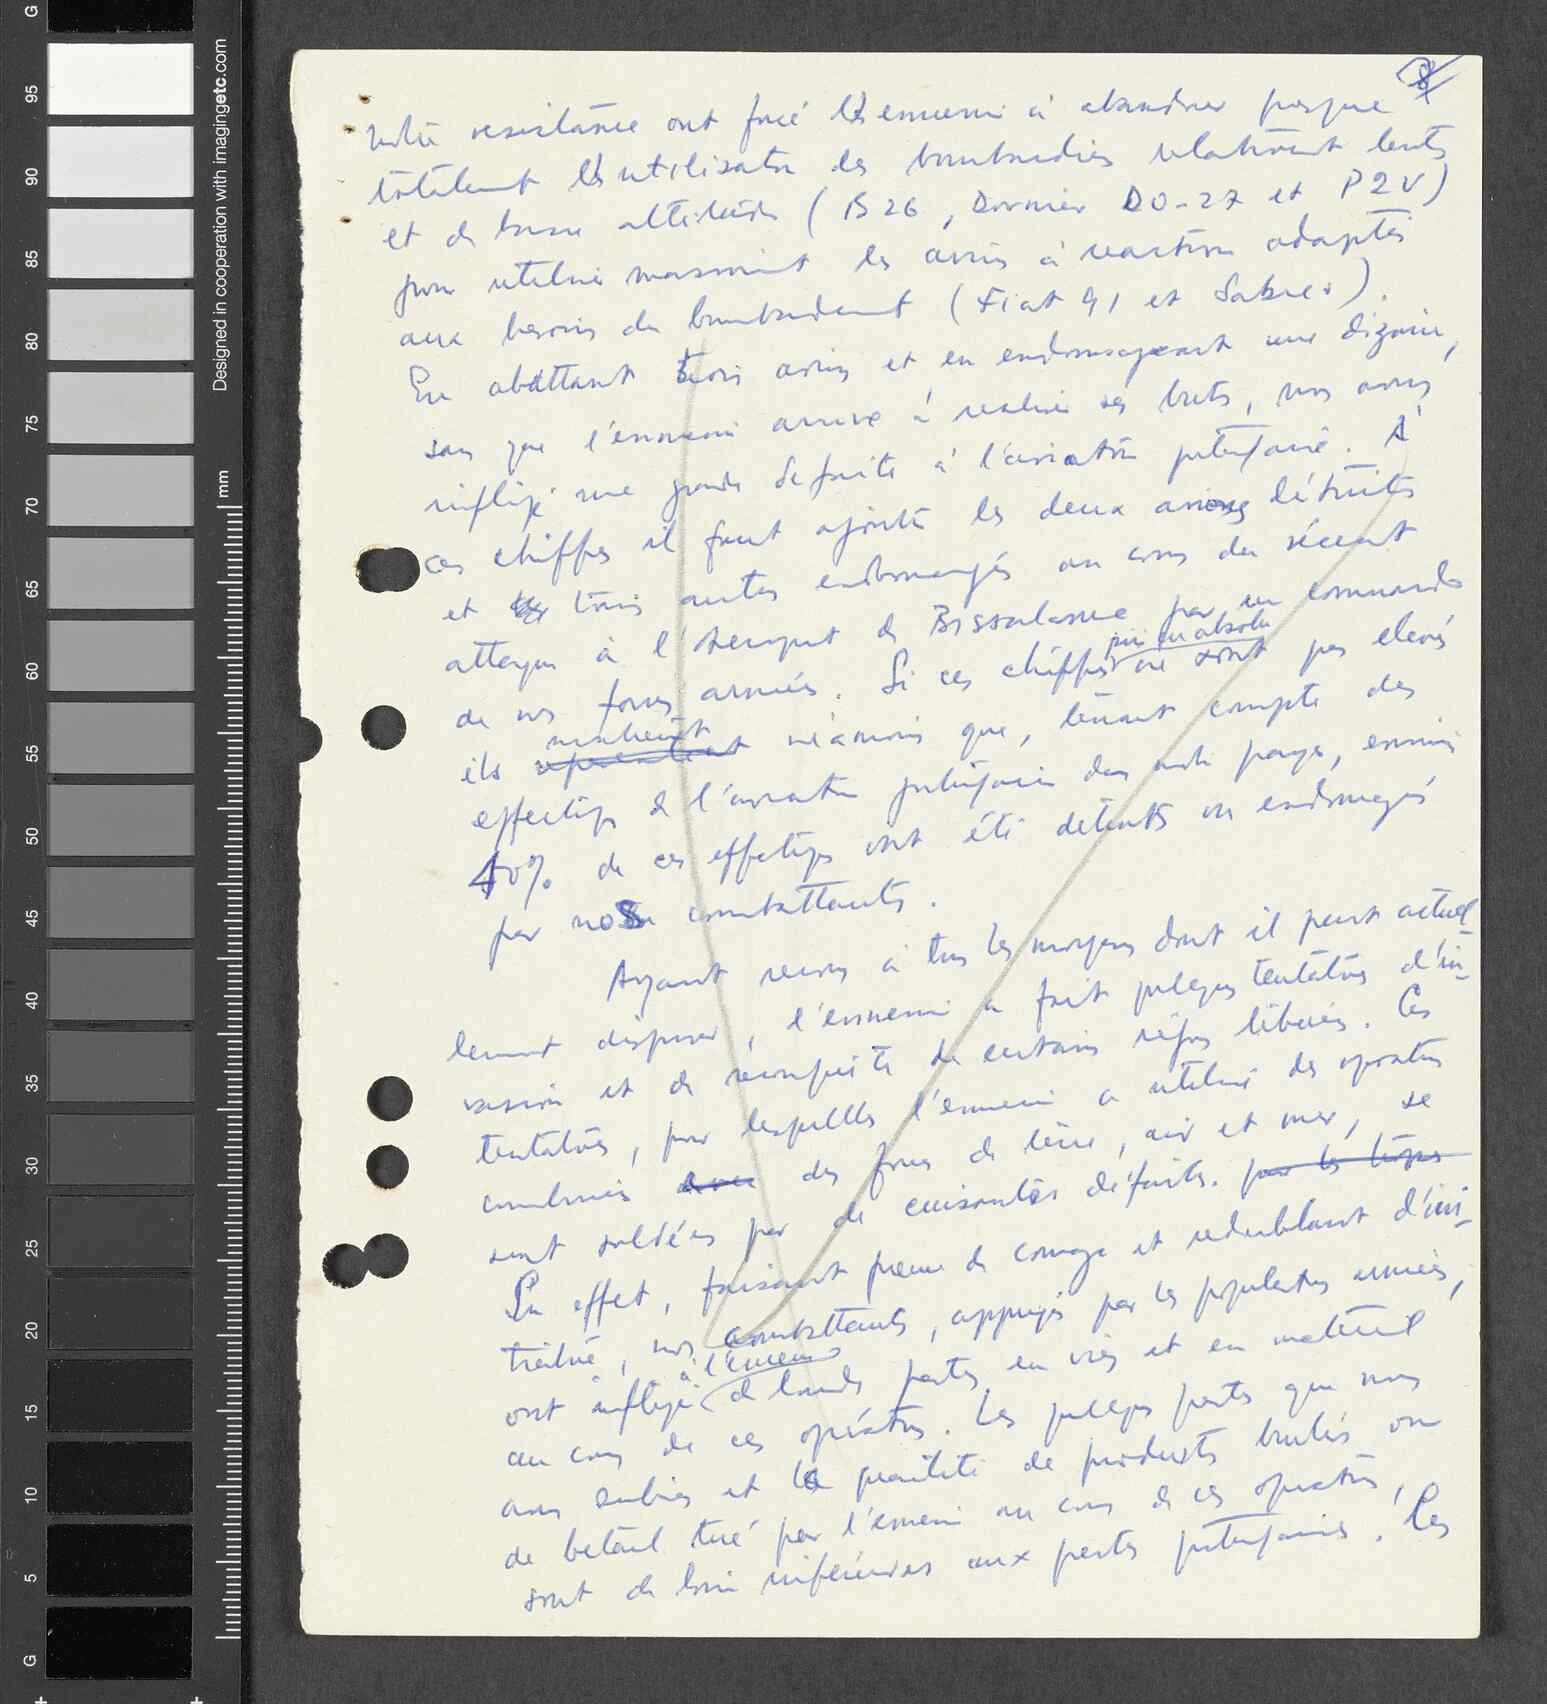 G
95
90
85
80
75
70
65
60
55
50
45
40
35
30
25
20
15
10
5
G
Designed in cooperation with imagingetc.com
mm
8
notre resistance ont forcé l'ennemi à abandonner presque
totalement l'utilisation des bombardiers relativement lents
et de basse altitude (B26, Dornier DO-27 et P2V)
pour utiliser massivement les avions à reaction adaptés
aux besoins du bombardement (Fiat 91 et Sabres).
En abattant trois avions et en endomageant une dizaine,
sans que l'ennemi arrive à realiser ses buts, nous avons
infligé une grande defaite à l'aviation portugaise. À
ces chiffres il faut ajouter les deux avions détruits
et trois autres endomagés au cours du récent
attaque à l'Aeroport de Bissalanca par un commando
de nos forces armées. Si ces chiffres pris en absolu ne sont pas elevés
ils représentent montrent néamoins que, tenant compte des
effectifs de l'aviation portugaise dans notre pays, environ
40% de ces effectifs ont été detruits ou endomagés
par nos combattants.
Ayant recours à tous les moyens dont il peut actuel
lement disposer, l'ennemi a fait quelques tentatives d'in-
vasion et de réconquête de certaines régions libérées. Ces
tentatives, pour lesquelles l'ennemi a utilisé des opérations
combinées avec des forces de terre, air et mer, se
sont soldées par de cuisantes défaites. par les lignes
En effet, faisant preuve de courage et redoublant d'ini-
tiative, nos combattants, appuyés par les populations armées,
ont infligé à l'ennemi de lourdes pertes en vies et en matériel
au cours de ces opérations. Les quelques pertes que nous
avons subies et la quantité de produits brulés ou
de betail tué par l'ennemi au cours de ces opérations,
sont de loin inférieures aux pertes portugaises. Les